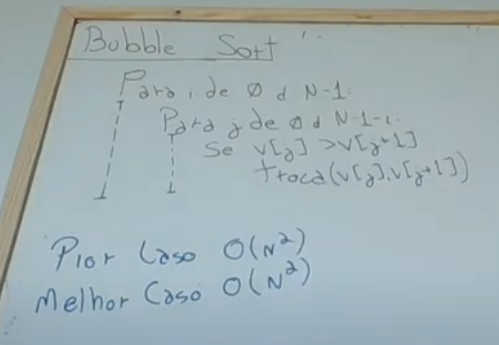 Bubble Sort
Para i de 0 a N-1:
Para j de 0 a N-1-i:
Se v[j] > v[j+1]
troca(v[j], v[j+1])
Pior Caso O(N²)
Melhor Caso O(N²)